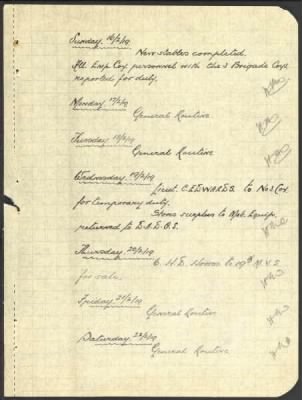 Sunday 16/2/19
New stables completed.
All Exp Coy personnel with the 3 Brigade Coys
reported for duty.
Monday 17/2/19
General Routine
Tuesday 18/2/19
General Routine
Wednesday 19/2/19
Lieut. C. EDWARDS. to No 3 Coy.
for temporary duty.
Stores surplus to Mob. Equip.
returned to D.A.D.O.S.
Thursday 20/2/19
6. H.D. Horses to 19th M.V.S
for sale.
Friday 21/2/19
General Routine
Saturday 22/2/19
General Routine